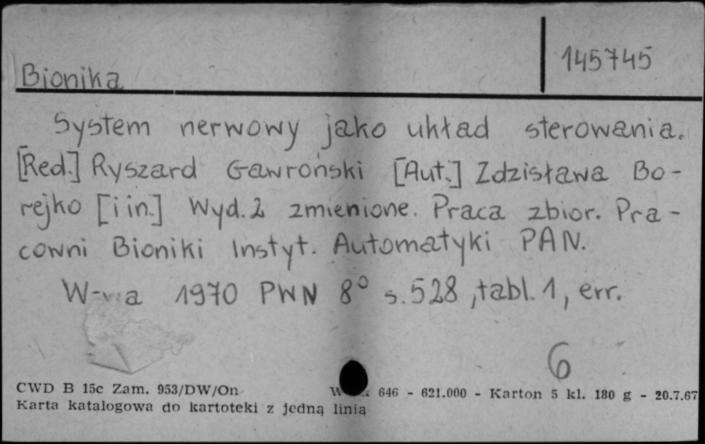 145745
Bionika
System nerwowy jako układ sterowania.
[Red.] Ryszard Gawroński [Aut.] Zdzisława Bo-
rejko [i in.] Wyd. 2 zmienione. Praca zbior. Pra-
cowni Bioniki Instyt. Automatyki PAN.
W-wa 1970 PWN 8° s. 528, tabl. 1, err.
6
CWD B 15c Zam. 953/DW/On 646 - 621.000 - Karton 5 kl. 180 g - 20.7.67
Karta katalogowa do kartoteki z jedną linią